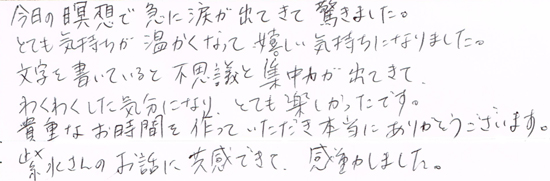 今日の瞑想で急に涙が出てきて驚きました。
とても気持ちが温かくなって嬉しい気持ちになりました。
文字を書いていると不思議と集中力が出てきて、
わくわくした気分になり、とても楽しかったです。
貴重なお時間を作っていただき本当にありがとうございます。
紫水さんのお話に共感できて、感動しました。